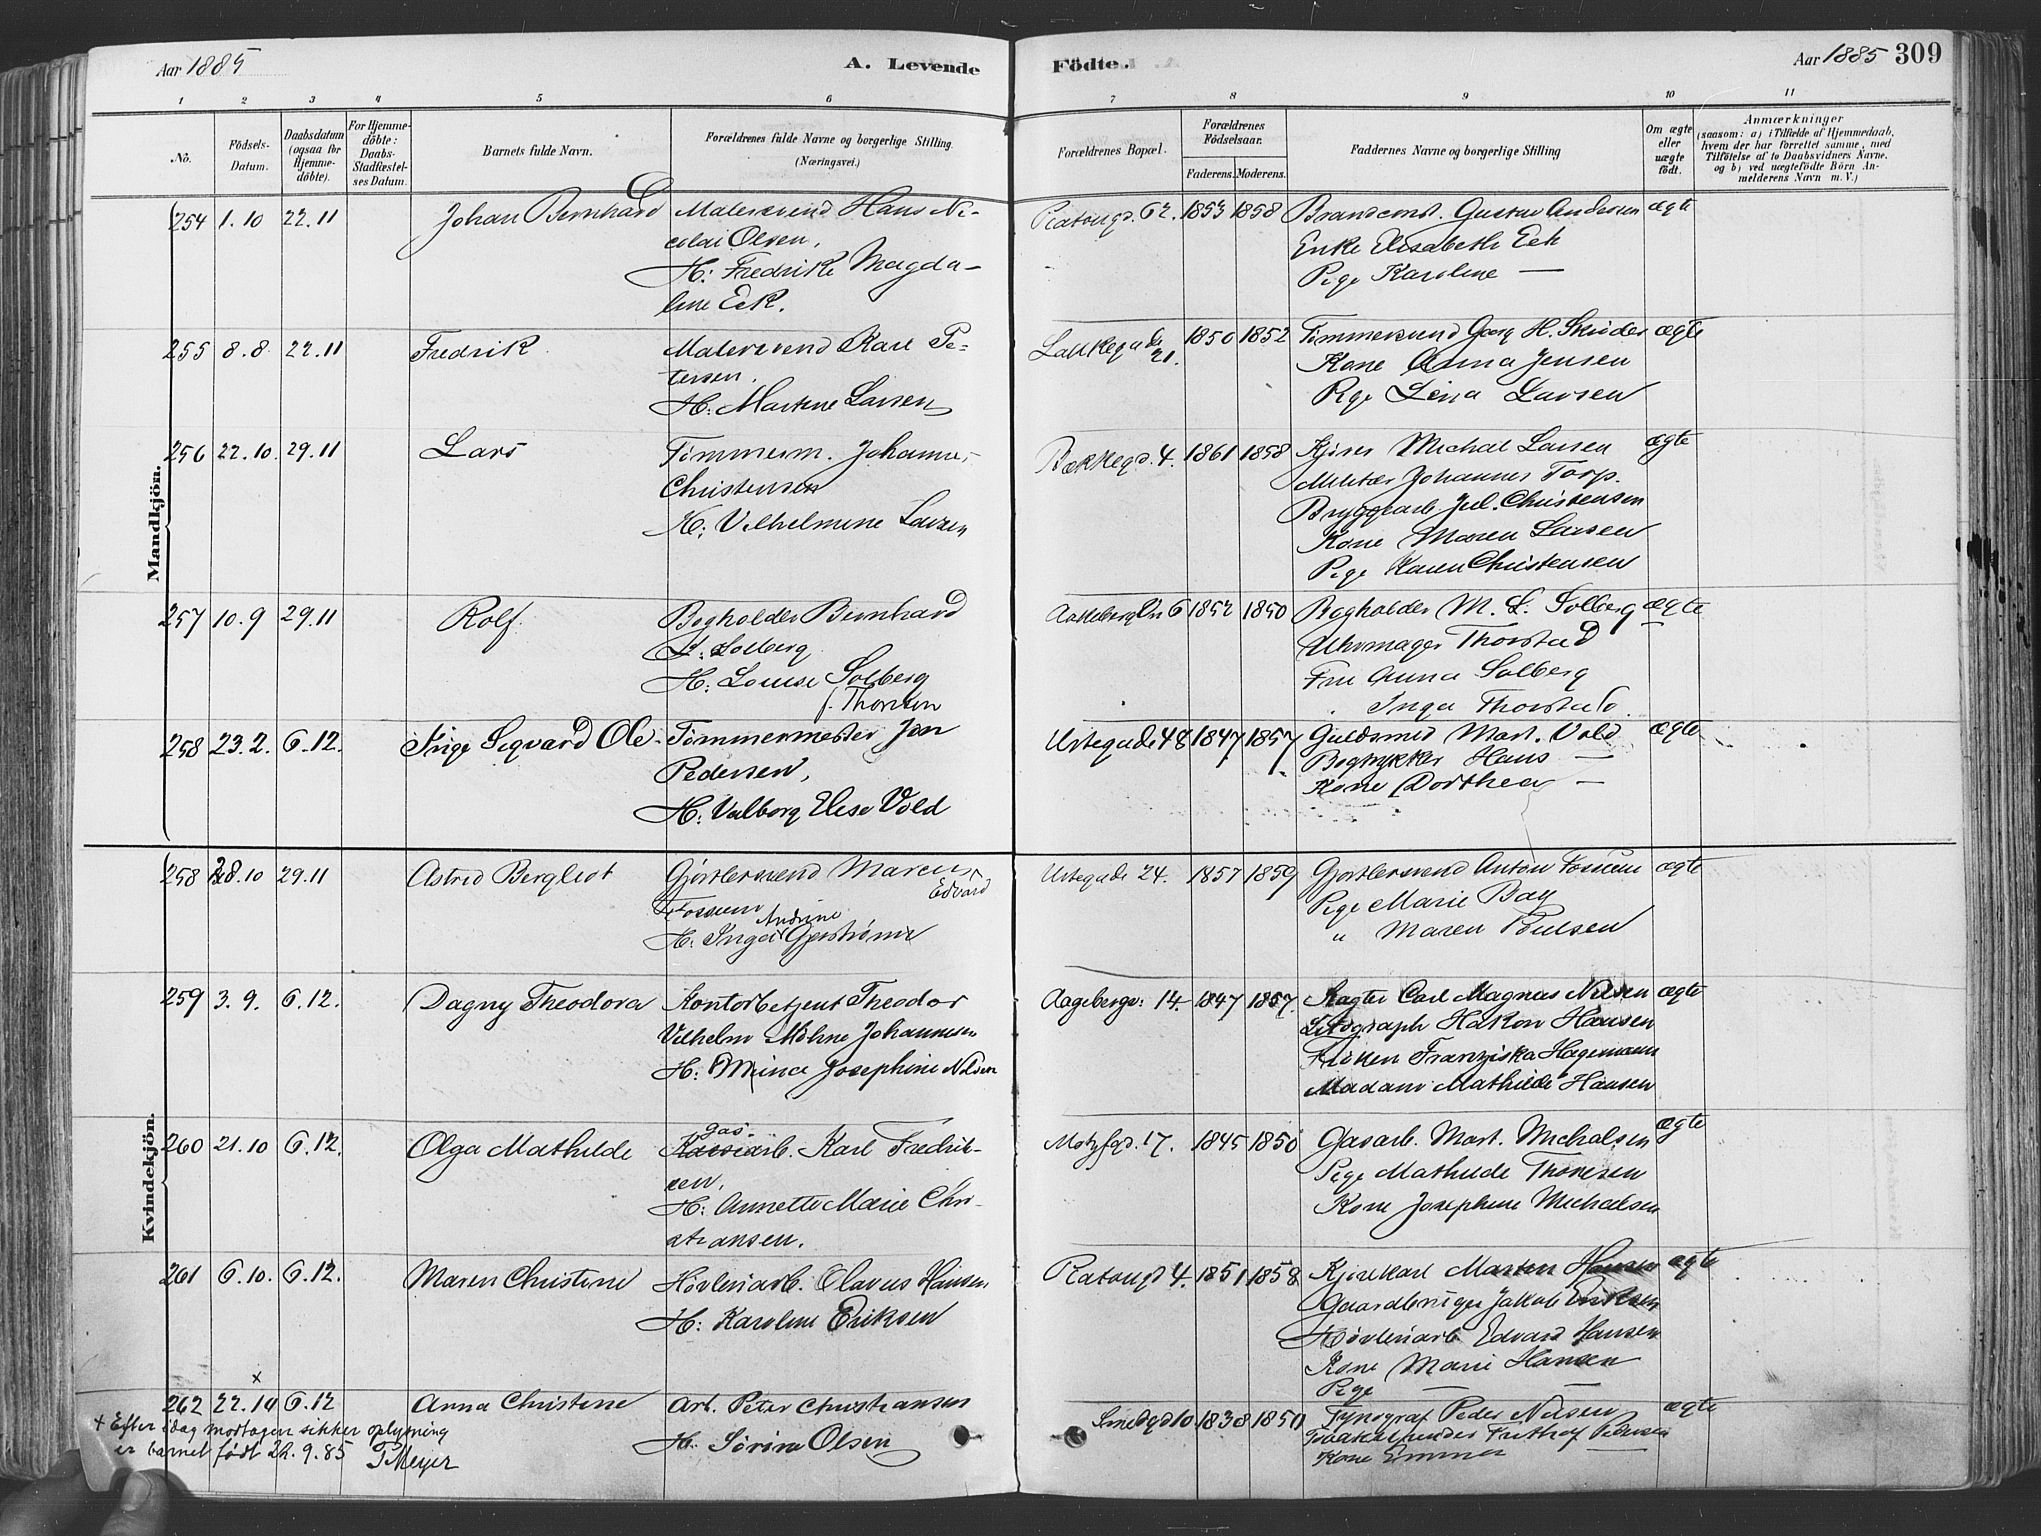 Aar 1885
A. Levende
Fødte.
Aar 1885 309
1 2 3 4 5 6 7 8 9 10 11
No.
Födsels-
Datum.
Daabsdatum
(ogsaa for
Hjemme-
döbte).
For Hjemme-
döbte:
Daabs-
Stadfæstel-
ses Datum.
Barnets fulde Navn.
Forældrenes fulde Navne og borgerlige Stilling.
(Næringsvei.)
Forældrenes Bopæl.
Forældrenes
Födselsaar.
Faderens. Moderens.
Faddernes Navne og borgerlige Stilling
Om ægte
eller
uægte
födt.
Anmærkninger
(saasom: a) i Tilfælde af Hjemmedaab,
hvem der har forrettet samme, med
Tilföielse af to Daabsvidners Navne,
og b) ved uægtefödte Börn An-
melderens Navn m. V.)
Mandkjön.
254 1.10 22.11 Johan Bernhard Malersvend Hans Ni-
colai Olsen,
H: Fredrike Magda-
lene Eek.
62. 1853 1858 Gustav Andersen ægte
Enke Elisabeth Eek
Pige Karoline —
255 8.8. 22.11 Fredrik Malersvend Karl Pe-
tersen.
H: Martine Larsen
Lakkegade
21.
1850 1852 Tømmersvend Georg H. Skrøder ægte
Kone Anna Jensen
Pige Lina Larsen
256 22.10. 29.11 Lars Tømmerm. Johannes
Christensen
H: Vilhelmine Larsen
Bakkegd. 4. 1861 1858 Kjører Michal Larsen ægte
Militær Johannes Torp.
Bryggearb. Jul. Christensen
Kone Maren Larsen
Pige Karen Christensen
257 10.9 29.11 Rolf. Bogholder Bernhard
L. Solberg
H: Louise Solberg
f. Thorsten
6 1852 1850 Bogholder M. L. Solberg ægte
Uhrmager Thorstad
Fru Anna Solberg
" Inga Thorstad.
258 23.2. 6.12. Inge Sigvard Ole. Tømmermester Jon
Pedersen,
H: Valborg Elise Vold
Urtegade 48 1847 1857 Guldsmed Mart. Vold ægte
Bogtrykker Hans —
Kone Dorthea —
Kvindekjön.
258 28.10 29.11 Astrid Bergliot Gjørtlersvend Marcus
Edvard
Fossum
Andrine
H: Inga Gjerstrøm
Urtegade 24. 1857 1859 Gjørtlersvend Anton Fossum ægte
Pige Marie Bay
" Maren Poulsen
259 3.9. 6.12. Dagny Theodora Kontorbetjent Theodor
Vilhelm Møhne Johannesen
H: Mina Josephine Nilsen
Aagebergv: 14. 1847 1857. Slagter Carl Magnus Nilsen ægte
Litograph Hakon Hansen
Frøken Franziska Hagemann
Madam Mathilde Hansen
260 21.10 6.12. Olga Mathilde
gas-
arb. Karl Fredrik-
sen.
H: Annette Marie Chri-
stiansen.
Motzfgd. 17. 1845 1850 Gasarb. Mart. Michalsen ægte
Pige Mathilde Thoresen
Kone Josephine Michalsen
261 6.10. 6.12. Maren Christine Høvleriarb. Olavus Hansen
H: Karoline Eriksen
4. 1851 1858 Kjørekarl Marten Hansen ægte
Gaardbruger Jakob Eriksen
Høvleriarb Edvard Hansen
Kone Marie Hansen
Pige — —
x
262 22.10 6.12 Anna Christine Arb. Peter Christiansen
H: Sørine Olsen
Smedgd 10. 1838 1850 Typograf Peder Nilsen ægte
Frithjof Pedersen
Kone Emma —
+ Efter idag modtagen sikker oplysning
er barnet født 22.9.85 T Meyer